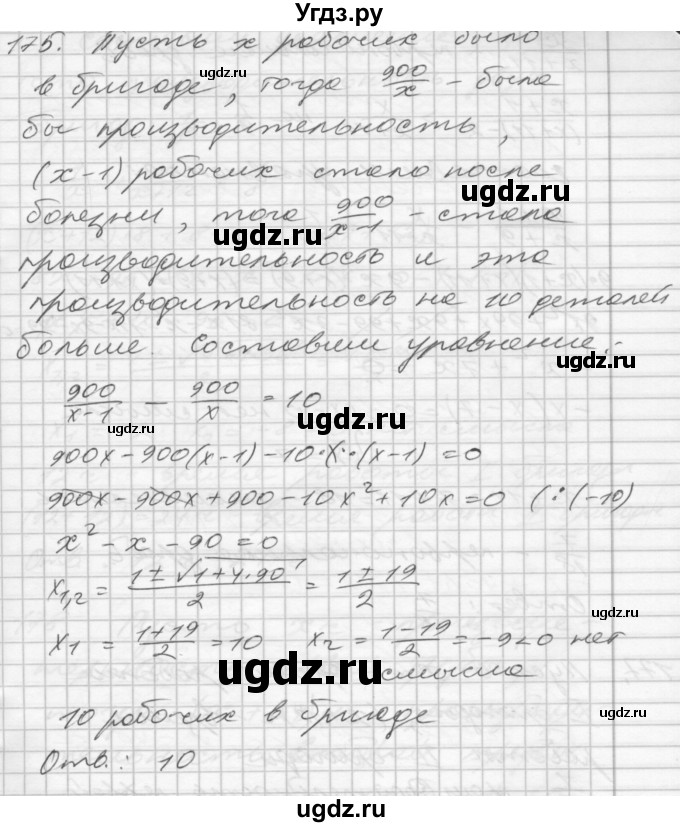 Угдз.ру
175. Пусть x рабочих было
ugdz.ru
в бригаде, тогда 900/x - была
бы производительность,
(x-1) рабочих стало после
ugdz.ru
болезни, того 900/x-1 - стала
ugdz.ru
производительность и эта
производительность на 10 деталей
больше. Составим уравнение:
900/x-1 - 900/x = 10
ugdz.ru
ugdz.ru
900x-900(x-1)-10·x·(x-1)=0
900x-900x+900-10x²+10x=0 (:(-10)
x²-x-90=0
x1,2 = 1±√1+4·90/2 = 1±19/2
ugdz.ru
x1 = 1+19/2 = 10 x2 = 1-19/2 = -9<0 нет
смысла
ugdz.ru
10 рабочих в бригаде
ugdz.ru
Отв.: 10
ugdz.ru
ugdz.ru